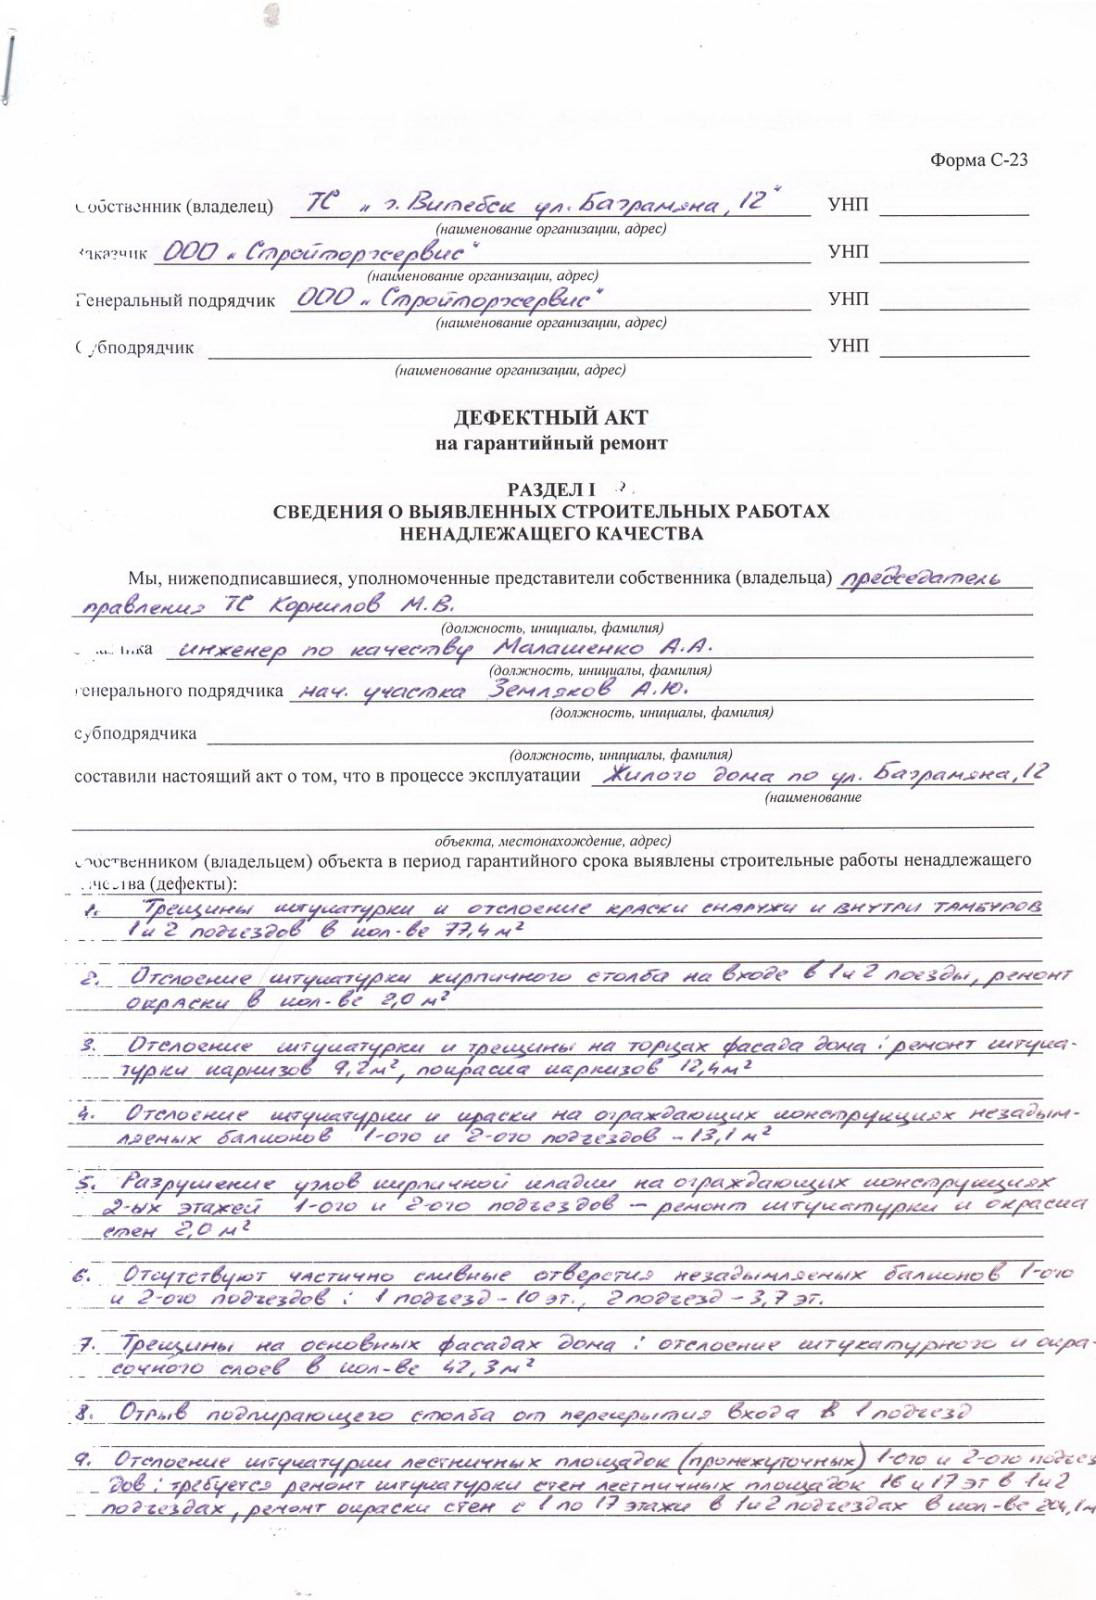 Форма С-23
Собственник (владелец) ТС „г. Витебск ул. Баграмяна, 12" УНП
(наименование организации, адрес)
Заказчик ООО „Стройторгсервис" УНП
(наименование организации, адрес)
Генеральный подрядчик ООО „Стройторгсервис" УНП
(наименование организации, адрес)
Субподрядчик УНП
(наименование организации, адрес)
ДЕФЕКТНЫЙ АКТ
на гарантийный ремонт
РАЗДЕЛ I
СВЕДЕНИЯ О ВЫЯВЛЕННЫХ СТРОИТЕЛЬНЫХ РАБОТАХ
НЕНАДЛЕЖАЩЕГО КАЧЕСТВА
Мы, нижеподписавшиеся, уполномоченные представители собственника (владельца) председатель
правления ТС Корнилов М.В.
(должность, инициалы, фамилия)
заказчика инженер по качеству Малашенко А.А.
(должность, инициалы, фамилия)
генерального подрядчика нач. участка Земляков А.Ю.
(должность, инициалы, фамилия)
субподрядчика
(должность, инициалы, фамилия)
составили настоящий акт о том, что в процессе эксплуатации Жилого дома по ул. Баграмяна, 12
(наименование
объекта, местонахождение, адрес)
собственником (владельцем) объекта в период гарантийного срока выявлены строительные работы ненадлежащего
качества (дефекты):
1. Трещины штукатурки и отслоение краски снаружи и внутри тамбуров
1 и 2 подъездов в кол-ве 77,4 м²
2. Отслоение штукатурки кирпичного столба на входе в 1 и 2 поезды, ремонт
окраски в кол-ве 2,0 м²
3. Отслоение штукатурки и трещины на торцах фасада дома: ремонт штука-
турки карнизов 9,2 м², покраска карнизов 12,4 м²
4. Отслоение штукатурки и краски на ограждающих конструкциях незадым-
ляемых балконов 1-ого и 2-ого подъездов - 13,1 м²
5. Разрушение узлов кирпичной кладки на ограждающих конструкциях
2-ых этажей 1-ого и 2-ого подъездов – ремонт штукатурки и окраска
стен 2,0 м²
6. Отсутствуют частично сливные отверстия незадымляемых балконов 1-ого
и 2-ого подъездов: 1 подъезд - 10 эт., 2 подъезд - 3,7 эт.
7. Трещины на основных фасадах дома: отслоение штукатурного и окра-
сочного слоев в кол-ве 42,3 м²
8. Отрыв подпирающего столба от перекрытия входа в 1 подъезд
9. Отслоение штукатурки лестничных площадок (промежуточных) 1-ого и 2-ого подъез
дов: требуется ремонт штукатурки стен лестничных площадок 16 и 17 эт в 1 и 2
подъездах, ремонт окраски стен с 1 по 17 этажи в 1 и 2 подъездах в кол-ве 204,1 м